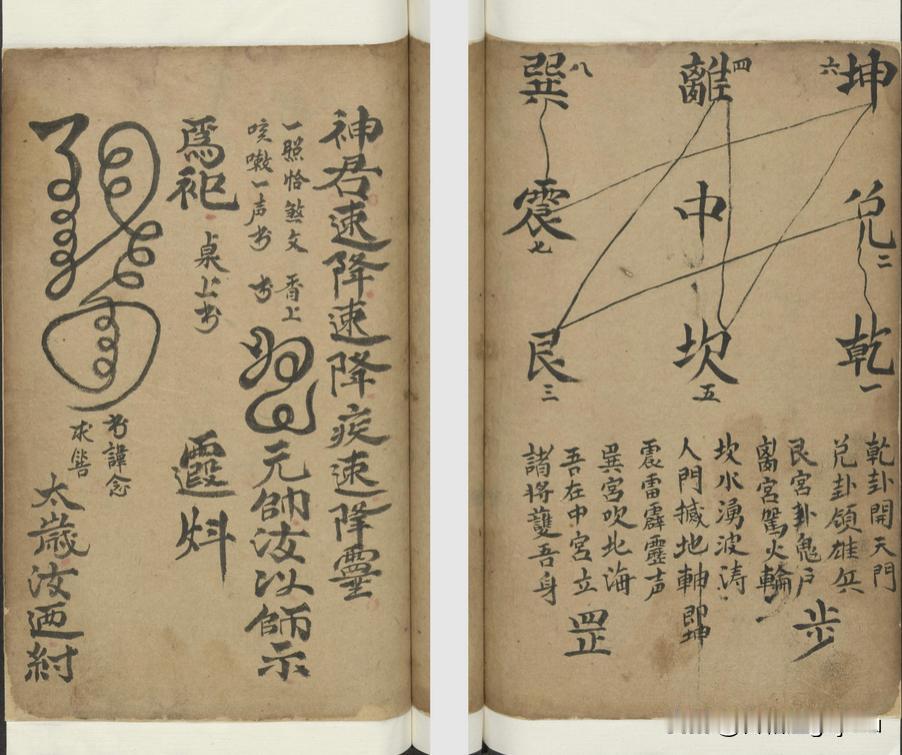 坤六
離四
巽八
兌二
中
震七
乾一
坎五
艮三
乾卦開天門
兌卦領雄兵
艮宮卦鬼戶
离宮駕火輪
坎水湧波濤
人門撼地軸 即坤
震雷霹靂声
巽宮吹北海
吾在中宮立
諸將護吾身
步
罡
神君速降速降疾速降靈
一照恰煞文 香上
咳嗽一声书 书
元帥汝以師示
為祀 桌上书
遐
书諱念
求
太歲汝迺紂